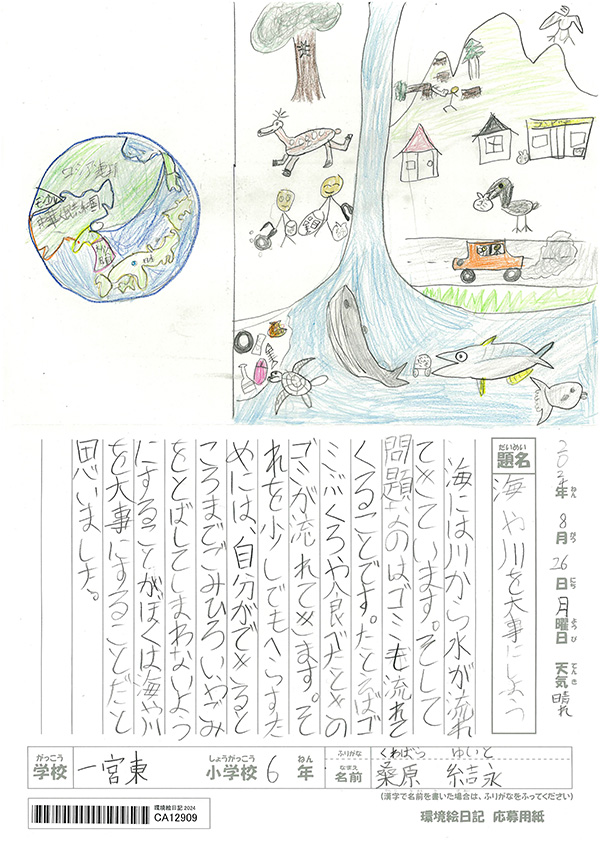 ロシア連邦
中華人民共和国
2024年 8月 26日 月曜日 天気 晴れ
ねん がつ にち ようび てんき
だいめい
題名
海や川を大事にしよう
海には川から水が流れ
てきています。そして
問題なのはゴミも流れて
くることです。たとえばゴ
ミぶくろや食べたときの
ゴミが流れてきます。そ
れを少しでもへらすた
めには、自分ができると
ころまでごみひろいやごみ
をとばしてしまわないよう
にすることがぼくは海や川
を大事にすることだと
思いました。
がっこう
学校
一宮東
しょうがっこう
小学校
6
ねん
年
ふりがな
くわばら ゆいと
なまえ
名前
桑原 結永
(漢字で名前を書いた場合は、ふりがなをふってください)
環境絵日記 2024
CA12909
環境絵日記 応募用紙